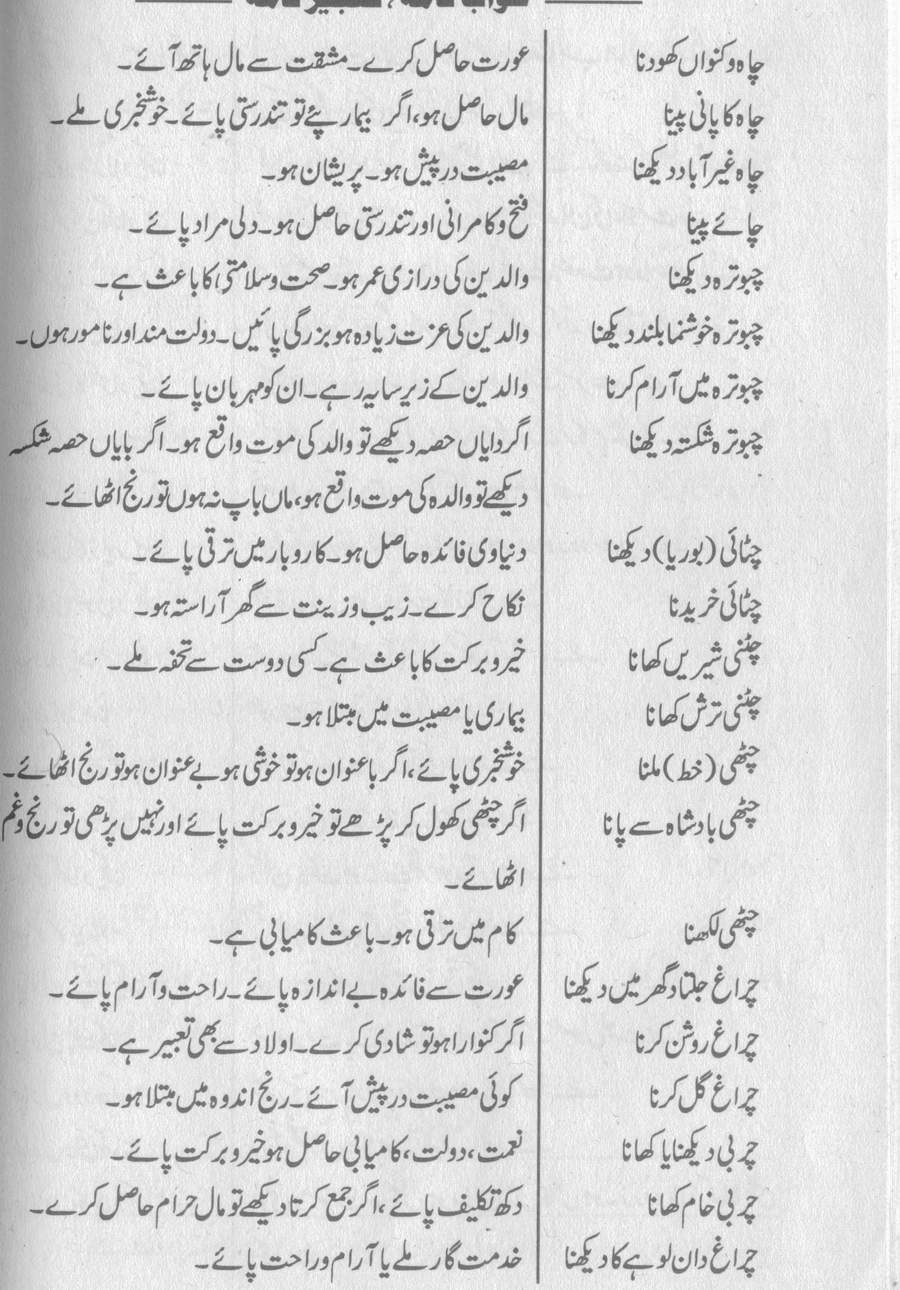 چاہ و کنواں کھودنا	عورت حاصل کرے۔ مشقت سے مال ہاتھ آئے۔
چاہ کا پانی پینا	مال حاصل ہو، اگر بیمار پئے تو تندرستی پائے۔ خوشخبری ملے۔
چاہ غیر آباد دیکھنا	مصیبت درپیش ہو۔ پریشان ہو۔
چائے پینا	فتح و کامرانی اور تندرستی حاصل ہو۔ دلی مراد پائے۔
چبوترہ دیکھنا	والدین کی درازی عمر ہو۔ صحت و سلامتی کا باعث ہے۔
چبوترہ خوشنما بلند دیکھنا	والدین کی عزت زیادہ ہو بزرگی پائیں۔ دولت مند اور نامور ہوں۔
چبوترہ میں آرام کرنا	والدین کے زیر سایہ رہے۔ ان کو مہربان پائے۔
چبوترہ شکستہ دیکھنا	اگر دایاں حصہ دیکھے تو والد کی موت واقع ہو۔ اگر بایاں حصہ شکسہ
دیکھے تو والدہ کی موت واقع ہو، ماں باپ نہ ہوں تو رنج اٹھائے۔
چٹائی (بوریا) دیکھنا	دنیاوی فائدہ حاصل ہو۔ کاروبار میں ترقی پائے۔
چٹائی خریدنا	نکاح کرے۔ زیب و زینت سے گھر آراستہ ہو۔
چٹنی شیریں کھانا	خیر و برکت کا باعث ہے۔ کسی دوست سے تحفہ ملے۔
چٹنی ترش کھانا	بیماری یا مصیبت میں مبتلا ہو۔
چٹھی (خط) ملنا	خوشخبری پائے، اگر باعنوان ہو تو خوشی ہو بے عنوان ہو تو رنج اٹھائے۔
چٹھی بادشاہ سے پانا	اگر چٹھی کھول کر پڑھے تو خیر و برکت پائے اور نہیں پڑھی تو رنج و غم
اٹھائے۔
چٹھی لکھنا	کام میں ترقی ہو۔ باعث کامیابی ہے۔
چراغ جلتا و گھر میں دیکھنا	عورت سے فائدہ بے اندازہ پائے۔ راحت و آرام پائے۔
چراغ روشن کرنا	اگر کنوارا ہو تو شادی کرے۔ اولاد سے بھی تعبیر ہے۔
چراغ گل کرنا	کوئی مصیبت درپیش آئے۔ رنج اندوہ میں مبتلا ہو۔
چربی دیکھنا یا کھانا	نعمت، دولت، کامیابی حاصل ہو خیر و برکت پائے۔
چربی خام کھانا	دکھ تکلیف پائے، اگر جمع کرتا دیکھے تو مال حرام حاصل کرے۔
چراغ دان لوہے کا دیکھنا	خدمت گار ملے یا آرام و راحت پائے۔